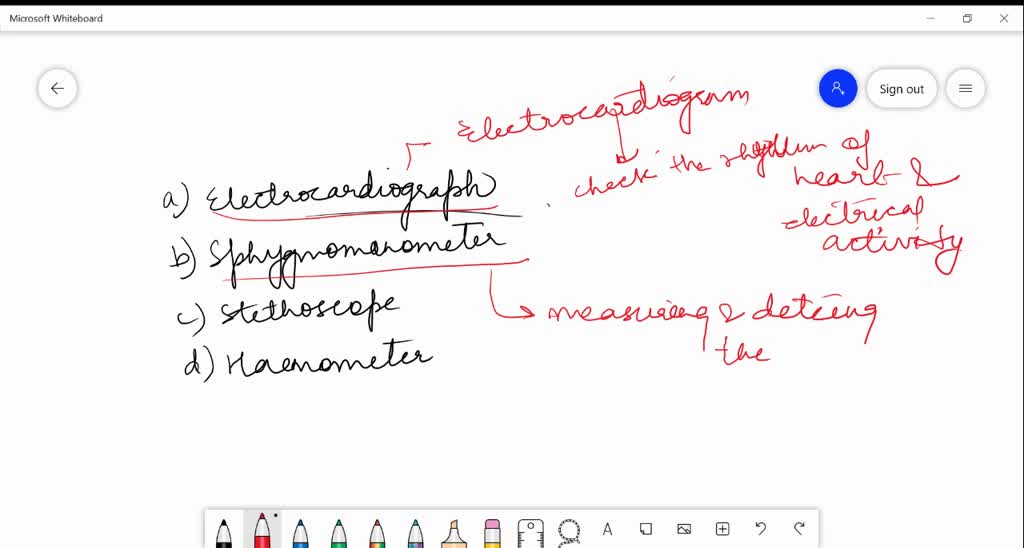 Microsoft Whiteboard
Sign out
Electrocardiogram
check the rhythm of
heart &
electrical
activity
a) Electrocardiograph
b) Sphygmomanometer
c) Stethoscope
d) Haemometer
measuring &
the
A